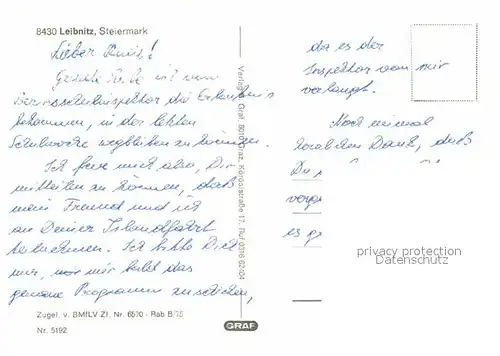 8430 Leibnitz, Steiermark
Lieber Kuis!
Gerade habe ich vom
Bezirksschulinspektor die Erlaubnis
bekommen, in der letzten
Schulwoche wegbleiben zu können.
Ich freue mich also, Dir
mitteilen zu können, daß
mein Freund und ich
an Deiner Islandfahrt
teilnehmen. Ich bitte Dich
nur, mir bald das
genaue Programm zu schicken,
da es der
Inspektor von mir
verlangt.
Noch einmal
herzlichen Dank, daß
Du
es
Verlag Graf, 8010 Graz, Königstraße 17, Ruf 0316 62404
Zugel. v. BMfLV Zl. Nr. 6570 - Rab B/75
Nr. 5192
GRAF
privacy protection
Datenschutz